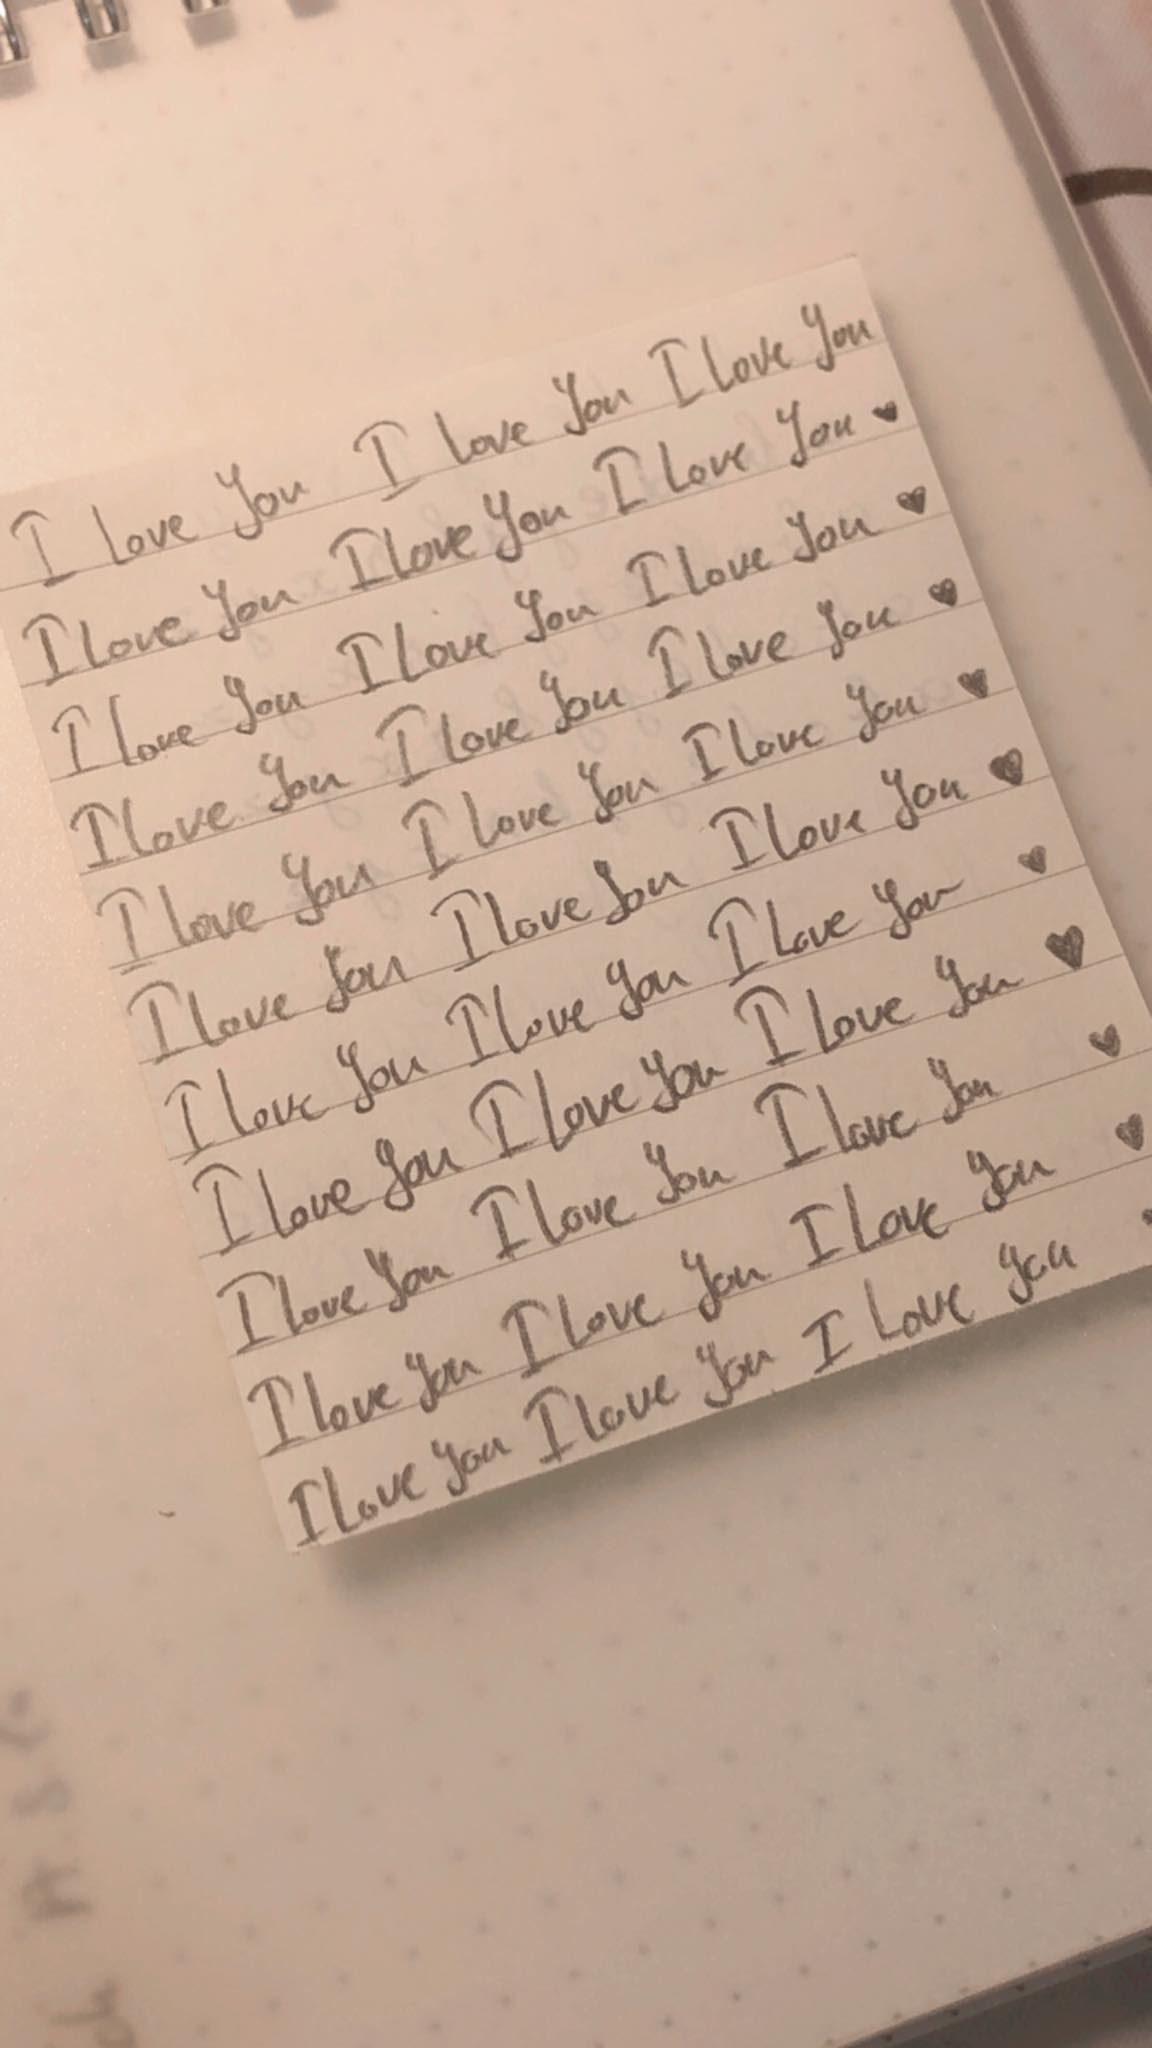 I love You I love You I love You
I love You I love You I love You ♥
I love You I love You I love You ♥
I love You I love You I love You ♥
I love You I love You I love You ♥
I love You I love You I love You ♥
I love You I love You I love You ♥
I love You I love You I love You ♥
I love You I love You I love You ♥
I love You I love You I love You ♥
I love You I love You I love You ♥